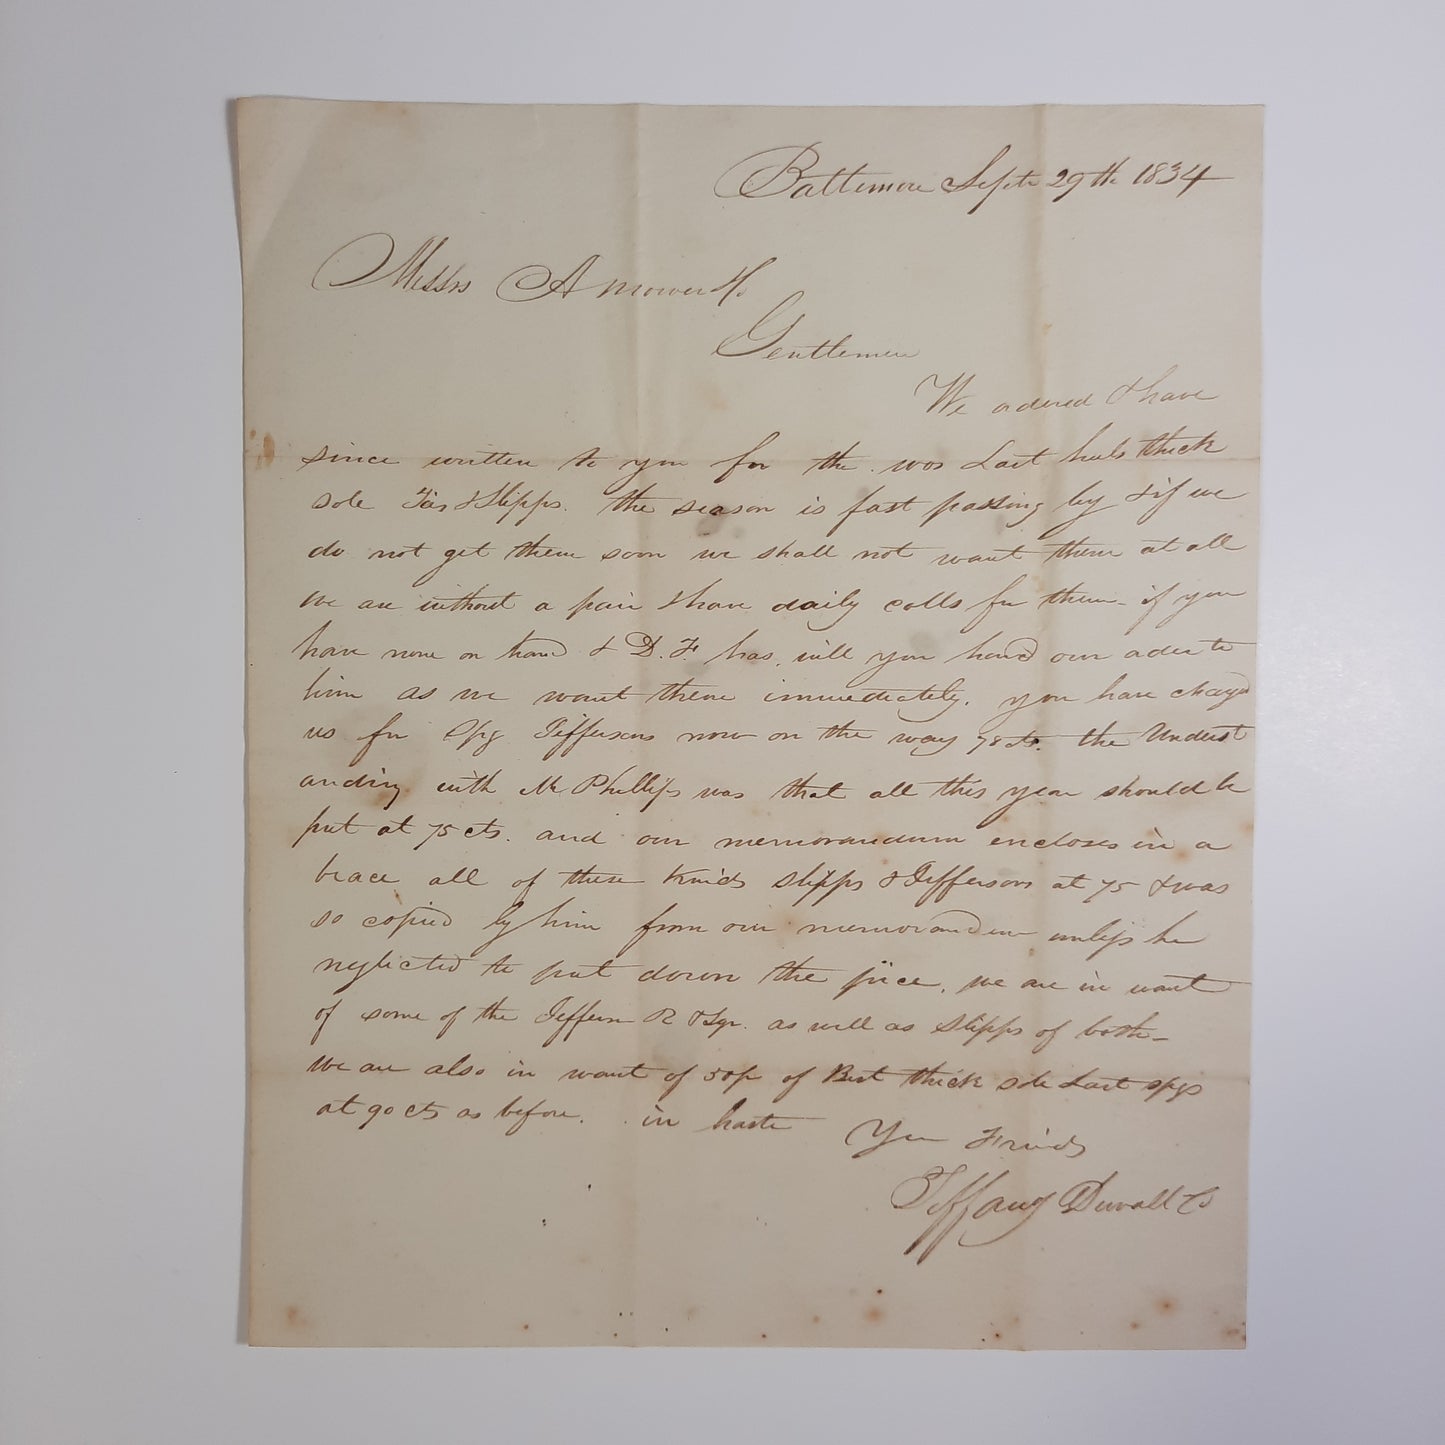 Baltimore Septr 29th 1834
Messrs A Mower & Co
Gentlemen
We ordered & have
since written to you for the wos Last heels thick
sole Ties & Slipps. the season is fast passing by & if we
do not get them soon we shall not want them at all
we are without a pair & have daily calls for them - if you
have none on hand & D. F. has, will you hand our order to
him as we want them immediately. you have chargd
us for Jeffersons now on the way 78 cts. the Underst
anding with Mr Phillips was that all this year should be
put at 75 cts. and our memorandum encloses in a
brace all of these kinds slipps & Jeffersons at 75 & was
so copied by him from our memorandum unless he
neglected to put down the price. we are in want
of some of the Jefferson R & Spr. as well as Slipps of both -
we are also in want of 50 pr of Best thick sole Last
at 90 cts as before. in haste
Your Friends
Tiffany Duvall & Co